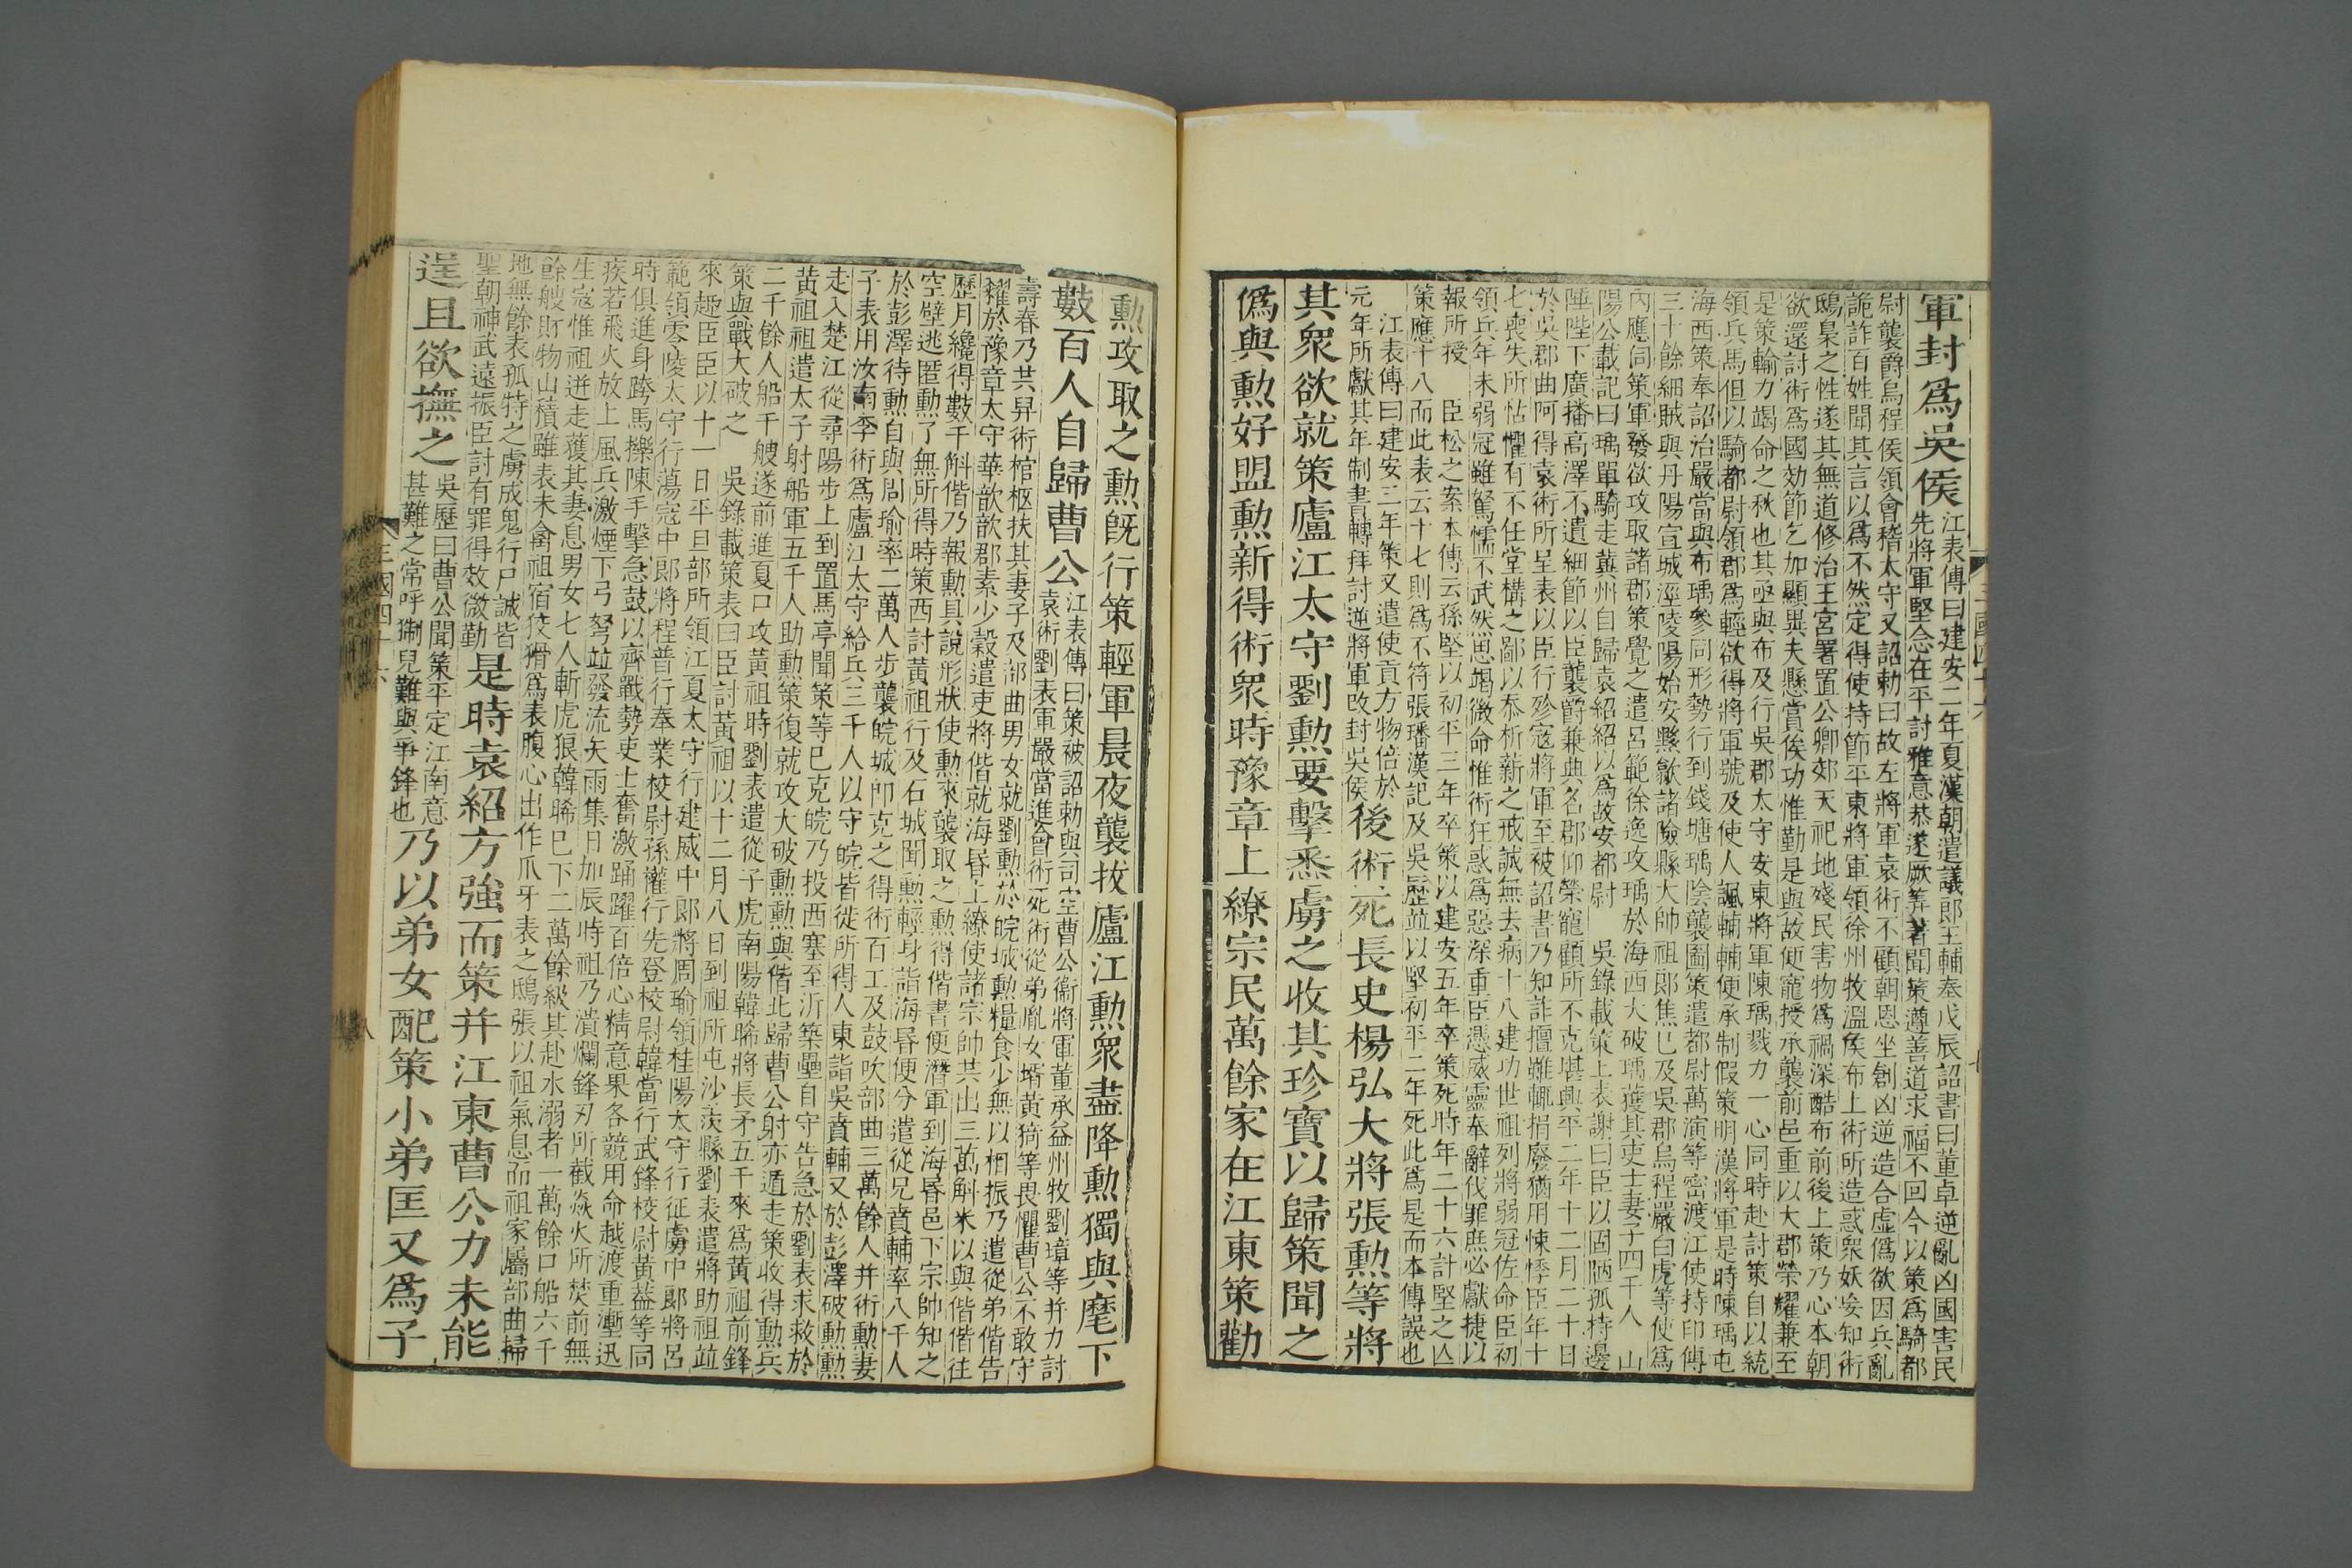 軍封爲吳侯江表傳曰建安二年夏漢朝遣議郎王輔奉戊辰詔書曰董卓逆亂凶國害民
先將軍堅念在平討雅意恭遂厥美著聞策遵善道求福不回今以策爲騎都
尉襲爵烏程侯領會稽太守又詔勅曰故左將軍袁術不顧朝恩坐創凶逆造合虛僞欲因兵亂
詭詐百姓聞其言以爲不然定得使持節平東將軍領徐州牧溫侯布上術所造惑衆妖妄知術
鴟梟之性遂其無道修治王宮署置公卿郊天祀地殘民害物爲禍深酷布前後上策乃心本朝
欲還討術爲國効節乞加顯異夫懸賞俟功惟勤是與故便寵授承襲前邑重以大郡榮耀兼至
是策輸力竭命之秋也其亟與布及行吳郡太守安東將軍陳瑀戮力一心同時赴討策自以統
領兵馬但以騎都尉領郡爲輕欲得將軍號及使人諷輔輔便承制假策明漢將軍是時陳瑀屯
海西策奉詔治嚴當與布瑀參同形勢行到錢塘瑀陰襲圖策遣都尉萬演等密渡江使持印傳
三十餘細賊與丹陽宣城涇陵陽始安黟歙諸險縣大帥祖郎焦已及吳郡烏程嚴白虎等使爲
內應伺策軍發欲攻取諸郡策覺之遣呂範徐逸攻瑀於海西大破瑀獲其吏士妻子四千人　山
陽公載記曰瑀單騎走冀州自歸袁紹紹以爲故安都尉　吳錄載策上表謝曰臣以固陋孤持邊
陲陛下廣播高澤不遺細節以臣襲爵兼典名郡仰榮寵顧所不克堪興平二年十二月二十日
於吳郡曲阿得袁術所呈表以臣行殄寇將軍至被詔書乃知詐擅雖輒捐廢猶用悚悸臣年十
七喪失所怙懼有不任堂構之鄙以忝析薪之戒誠無去病十八建功世祖列將弱冠佐命臣初
領兵年未弱冠雖駑懦不武然思竭微命惟術狂惑爲惡深重臣憑威靈奉辭伐罪庶必獻捷以
報所授　臣松之案本傳云孫堅以初平三年卒策以建安五年卒策死時年二十六計堅之亾
策應十八而此表云十七則爲不符張璠漢記及吳歷並以堅初平二年死此爲是而本傳誤也
江表傳曰建安三年策又遣使貢方物倍於
元年所獻其年制書轉拜討逆將軍改封吳侯後術死長史楊弘大將張勳等將
其衆欲就策廬江太守劉勳要擊悉虜之收其珍寶以歸策聞之
僞與勳好盟勳新得術衆時豫章上繚宗民萬餘家在江東策勸
勳攻取之勳旣行策輕軍晨夜襲拔廬江勳衆盡降勳獨與麾下
數百人自歸曹公江表傳曰策被詔勅與司空曹公衞將軍董承益州牧劉璋等并力討
袁術劉表軍嚴當進會術死術從弟胤女壻黃猗等畏懼曹公不敢守
壽春乃共舁術棺柩扶其妻子及部曲男女就劉勳於皖城勳糧食少無以相振乃遣從弟偕告
糴於豫章太守華歆歆郡素少穀遣吏將偕就海昬上繚使諸宗帥共出三萬斛米以與偕偕往
歷月纔得數千斛偕乃報勳具說形狀使勳來襲取之勳得偕書便潛軍到海昬邑下宗帥知之
空壁逃匿勳了無所得時策西討黃祖行及石城聞勳輕身詣海昬便分遣從兄賁輔率八千人
於彭澤待勳自與周瑜率二萬人步襲皖城卽克之得術百工及鼓吹部曲三萬餘人并術勳妻
子表用汝南李術爲廬江太守給兵三千人以守皖皆徙所得人東詣吳賁輔又於彭澤破勳勳
走入楚江從尋陽步上到置馬亭聞策等已克皖乃投西塞至沂築壘自守告急於劉表求救於
黃祖祖遣太子射船軍五千人助勳策復就攻大破勳勳與偕北歸曹公射亦遁走策收得勳兵
二千餘人船千艘遂前進夏口攻黃祖時劉表遣從子虎南陽韓晞將長矛五千來爲黃祖前鋒
策與戰大破之　吳錄載策表曰臣討黃祖以十二月八日到祖所屯沙羨縣劉表遣將助祖竝
來趣臣臣以十一日平旦部所領江夏太守行建威中郎將周瑜領桂陽太守行征虜中郎將呂
範領零陵太守行蕩寇中郎將程普行奉業校尉孫權行先登校尉韓當行武鋒校尉黃蓋等同
時俱進身跨馬擽陳手擊急鼓以齊戰勢吏士奮激踊躍百倍心精意果各競用命越渡重塹迅
疾若飛火放上風兵激煙下弓弩竝發流矢雨集日加辰時祖乃潰爛鋒刃所截猋火所焚前無
生寇惟祖迸走獲其妻息男女七人斬虎狼韓晞已下二萬餘級其赴水溺者一萬餘口船六千
餘艘財物山積雖表未禽祖宿狡猾爲表腹心出作爪牙表之鴟張以祖氣息而祖家屬部曲掃
地無餘表孤特之虜成鬼行尸誠皆
聖朝神武遠振臣討有罪得效微勤是時袁紹方強而策并江東曹公力未能
逞且欲撫之吳歷曰曹公聞策平定江南意
甚難之常呼猘兒難與爭鋒也乃以弟女配策小弟匡又爲子
三國四十六
八
三國四十六
七